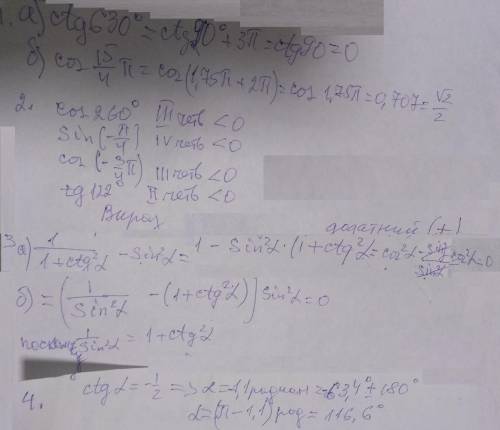 1. а) ctg630° = ctg90° + 3π = ctg90 = 0
б) cos 15/4 π = cos(1,75π + 2π) = cos 1,75π = 0,707 = √2/2
2. cos260° III четв <0
sin(-π/4) IV четв <0
cos(-3/4π) III четв <0
tg 122 II четв <0
Вираз додатний (+)
3 а) 1/(1+ctg²α) - sin²α = 1 - sin²α·(1+ctg²α = cos²α - cos²α = 0
б) = (1/sin²α - (1+ctg²α)] sin²α = 0
1/sin²α = 1+ctg²α
4. ctgα = -1/2 => α = -1,1 радиан = -63,4° ± 180°
α = (π-1,1) рад = 116,6°